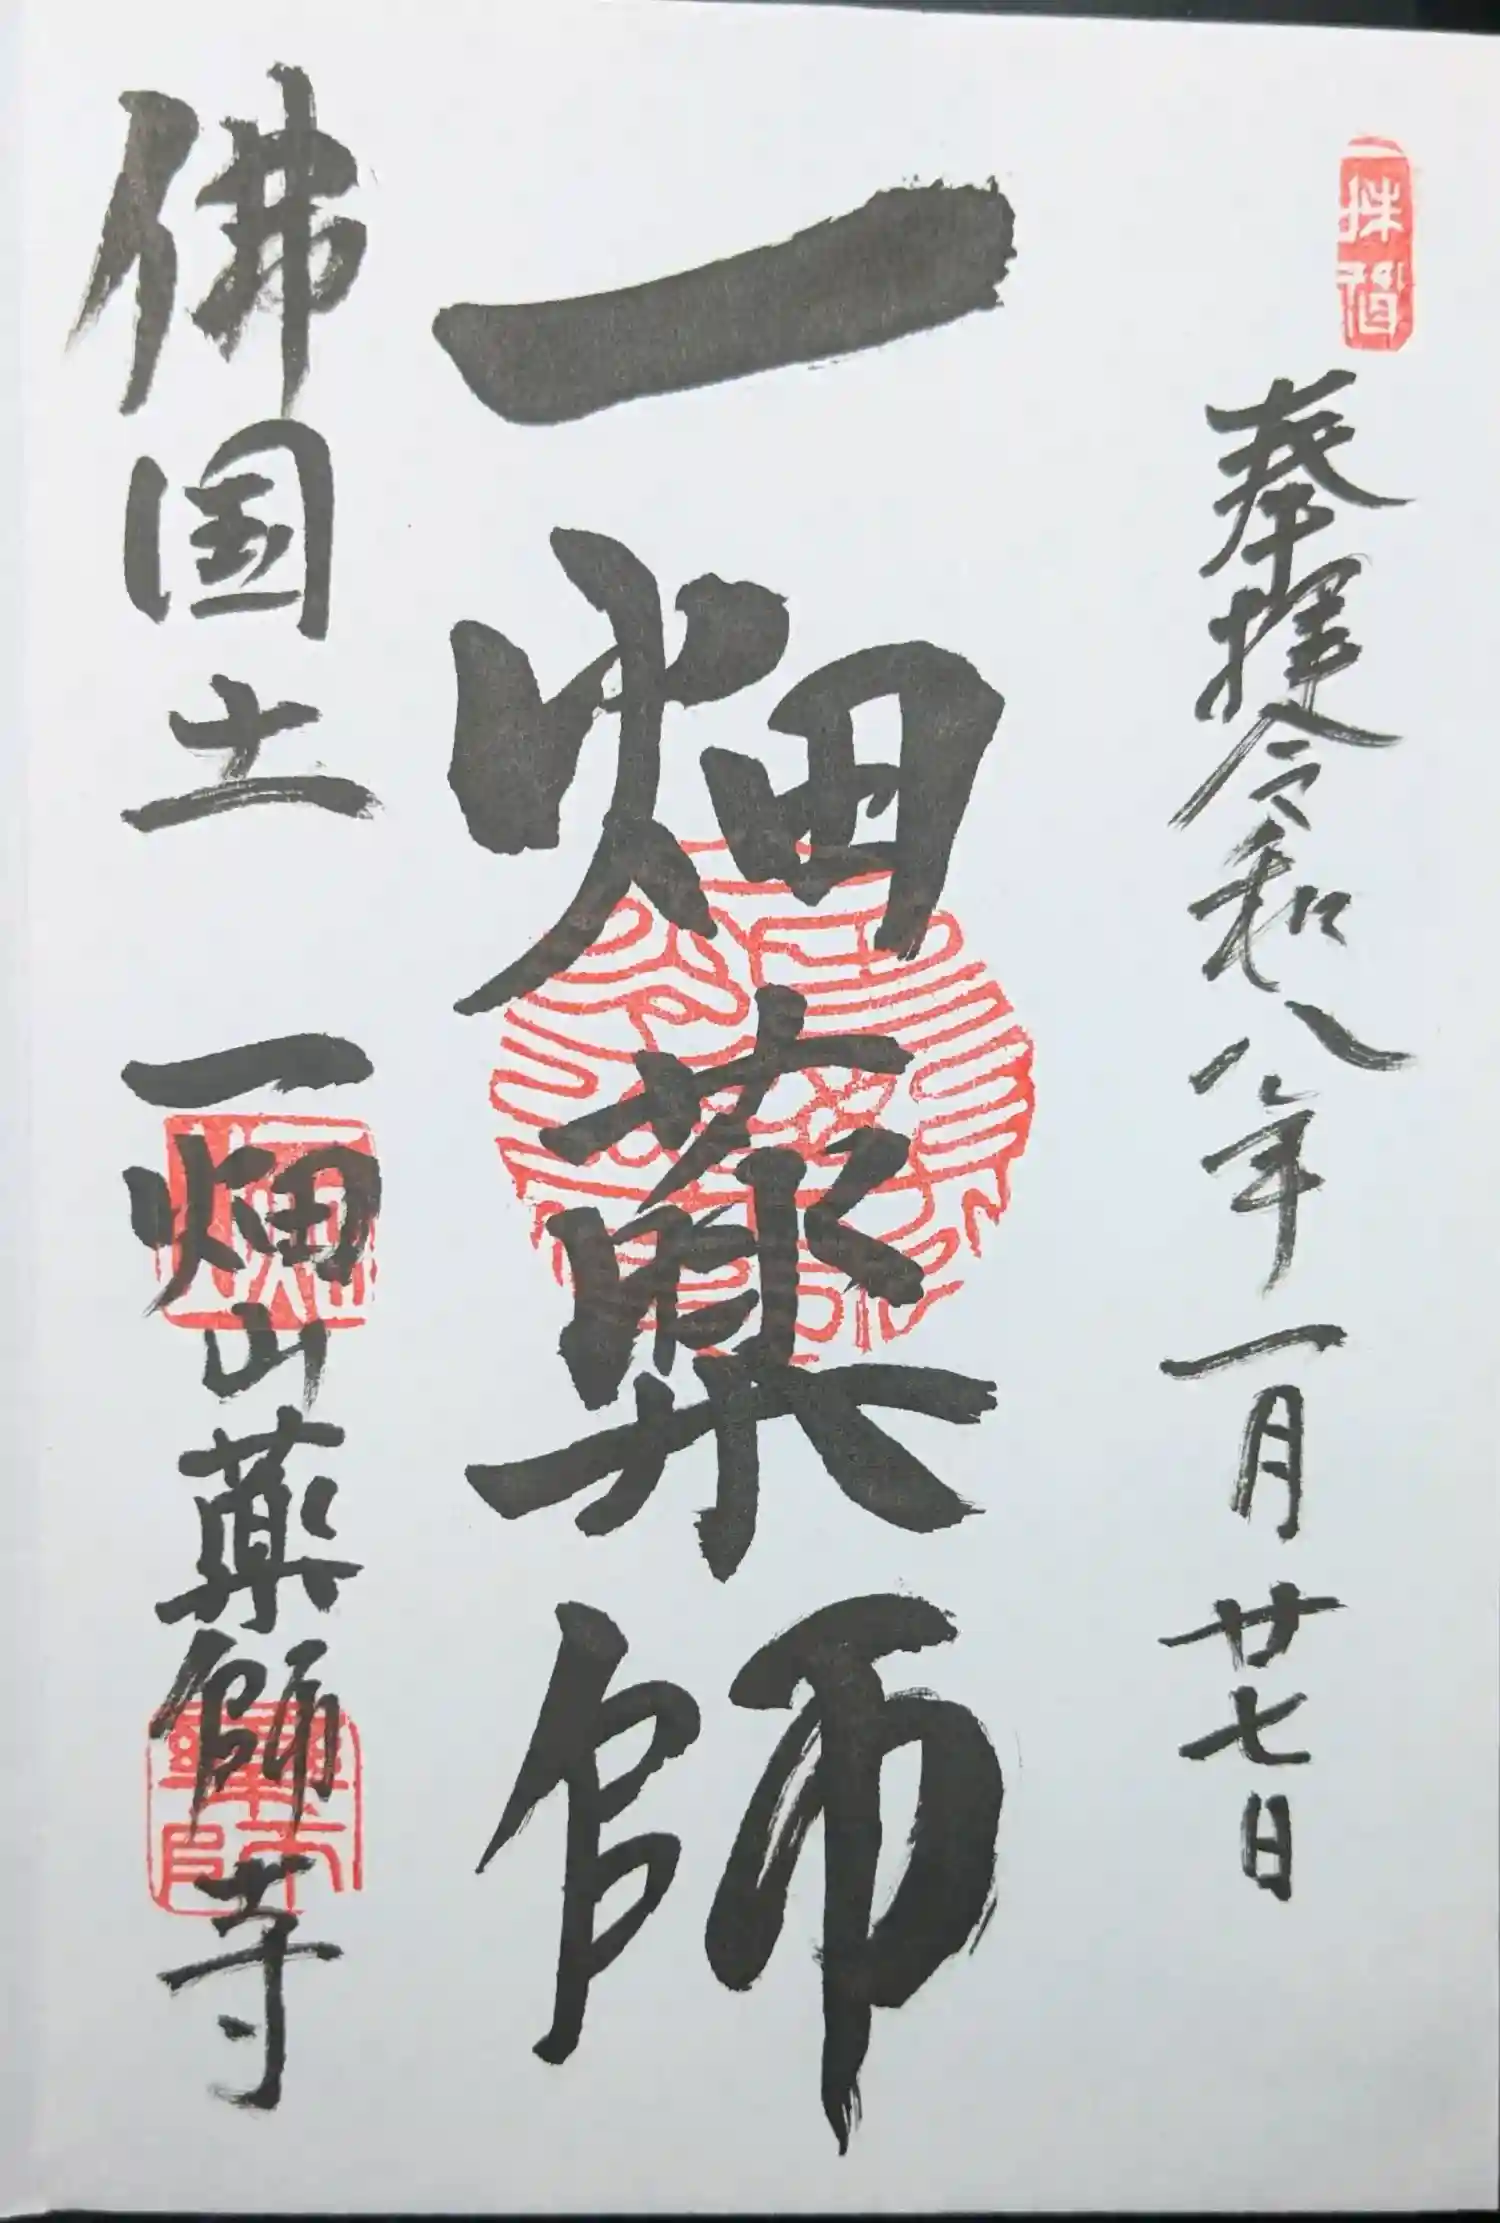 奉拝令和八年一月廿七日
一畑薬師
佛国土 一畑山薬師寺